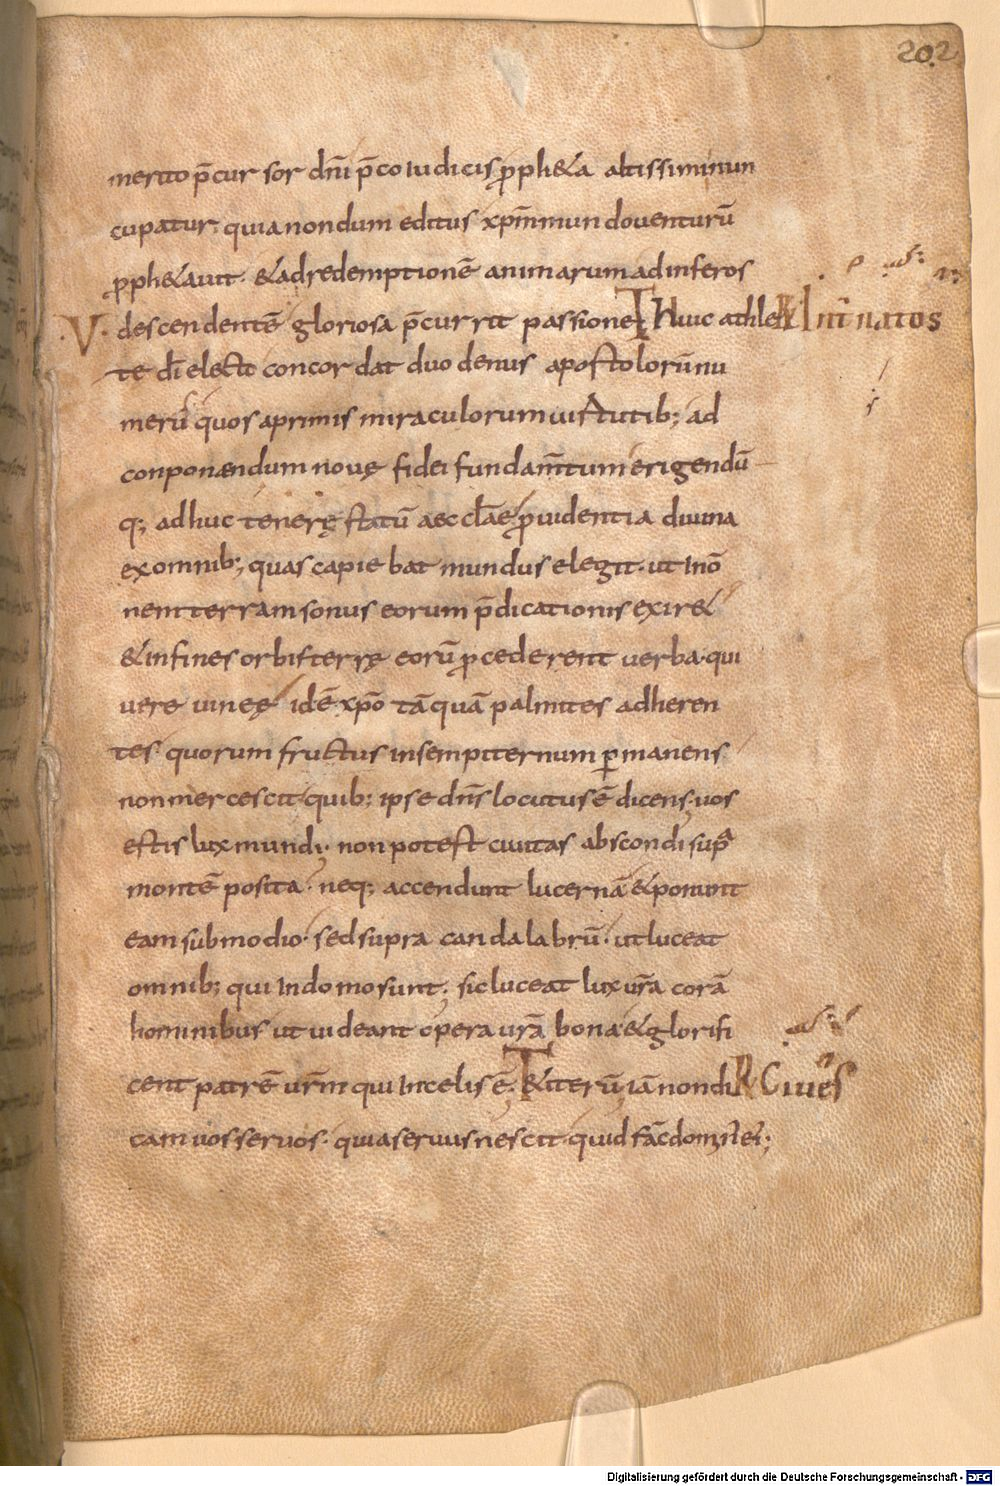 202
merito p̄cursor dn̄i p̄co Iudicis ꝓph&a altissimi nun
cupatur. quia nondum editus xp̄m mundo venturū
ꝓph&auit. & ad redemptionē animarum ad inferos
V. descendentē gloriosa p̄currit passione. T Huic athle R Int̄ natos
te dī electo concordat duodenus apostolorū nu
merū quos a primis miraculorum uirtutib; ad
conponendum nouę fidei fundam̄tum erigendū
q; adhuc tenerę statū aecclāe ꝓuidentia diuina
ex omnib; quas capiebat mundus elegit. ut In ō
nem terram sonus eorum p̄dicationis exir&
& in fines orbis terrę eorū ꝓcederent uerba. qui
uere uineę idē xp̄o tāquā palmites adheren
tes. quorum fructus in sempiternum ꝑmanens
non mercescit. quib; ipse dn̄s locutus ē dicens. uos
estis lux mundi. non potest ciuitas abscondi sup̄
montē posita. neq; accendunt lucernā & ponunt
eam sub modio. sed supra candalabrū. ut luceat
omnib; qui In domo sunt. sic luceat lux ur̄a corā
hominibus ut uideant opera ur̄a bona & glorifi
cent patrē ur̄m qui In celis ē. T & iterū iā non di R Ciues
cam uos seruos. quia seruus nescit quid fac̄ dom̄
Digitalisierung gefördert durch die Deutsche Forschungsgemeinschaft - DFG